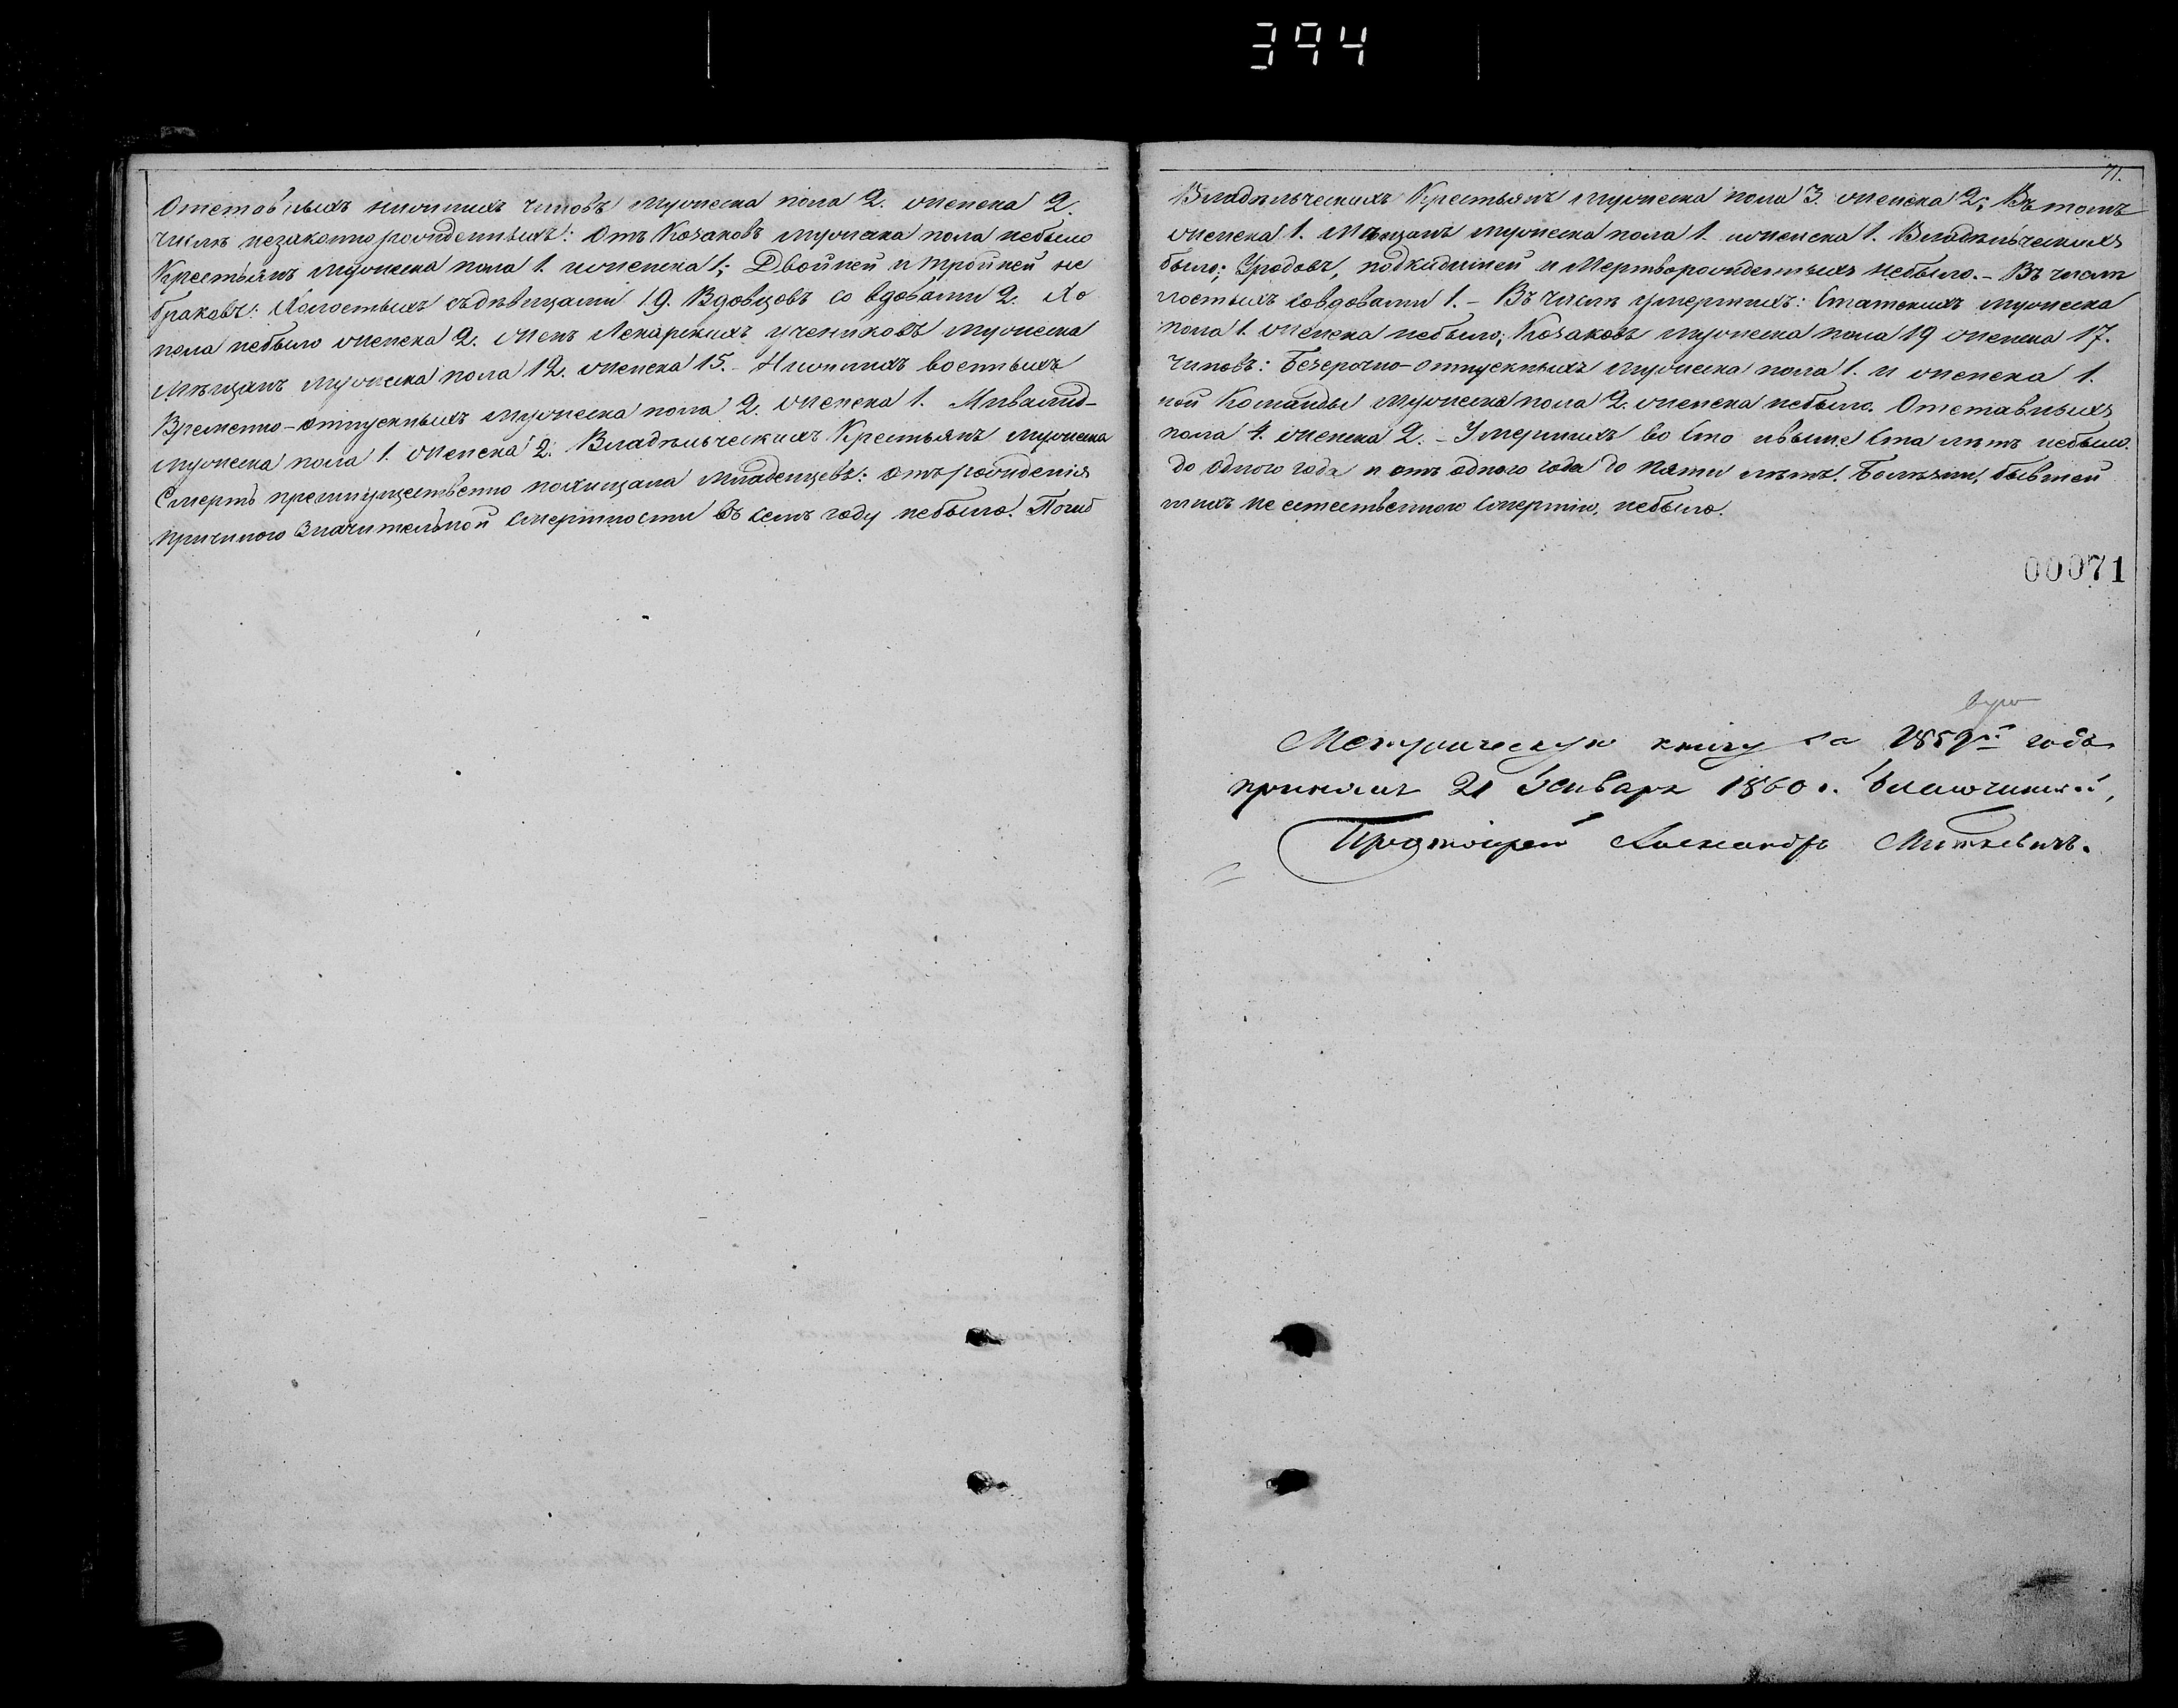 394
Отставныхъ нижнихъ чиновъ мужеска пола 2. женска 2.
числѣ незаконнорожденныхъ: отъ Козаковъ мужеска пола небыло
Крестьянъ мужеска пола 1. иженска 1; Двойней и тройней не
браковъ: Холостыхъ съдѣвицами 19. Вдовцовъ со вдовами 2. Хо
пола небыло женска 2. Женъ Лекарскихъ учениковъ мужеска
Мѣщанъ мужеска пола 12. женска 15. - Нижнихъ военныхъ
Временно-отпускныхъ мужеска пола 2. женска 1. Инвалид-
мужеска пола 1. женска 2. Владѣльческихъ Крестьянъ мужеска
Смерть преимущественно похищала младенцевъ: отъ рожденія
причиною значительной смертности въ семъ году небыло. Погиб
71.
Владѣльческихъ Крестьянъ мужеска пола 3. женска 2; Въ томъ
женска 1. Мѣщанъ мужеска пола 1. иженска 1. Владѣльческихъ
было; Уродовъ, подкидышей и Мертворожденныхъ небыло. - Въ числѣ
лостыхъ совдовами 1. - Въ числѣ умершихъ: Статскихъ мужеска
пола 1. женска небыло; Козаковъ мужеска пола 19 женска 17.
чиновъ: Безсрочно-отпускныхъ мужеска пола 1. и женска 1.
ной Команды мужеска пола 2. женска небыло. Отставныхъ
пола 4. женска 2. - Умершихъ во сто ивыше ста лѣтъ небыло.
до одного года и отъ одного года до пяти лѣтъ. Болѣзни, бывшей
шихъ не естественною смертію, небыло.
00071
Метрическую книгу за 1859й годъ
принялъ 21 Января 1860 г. Благочинный,
Протоіерей Александръ Миткевичъ.